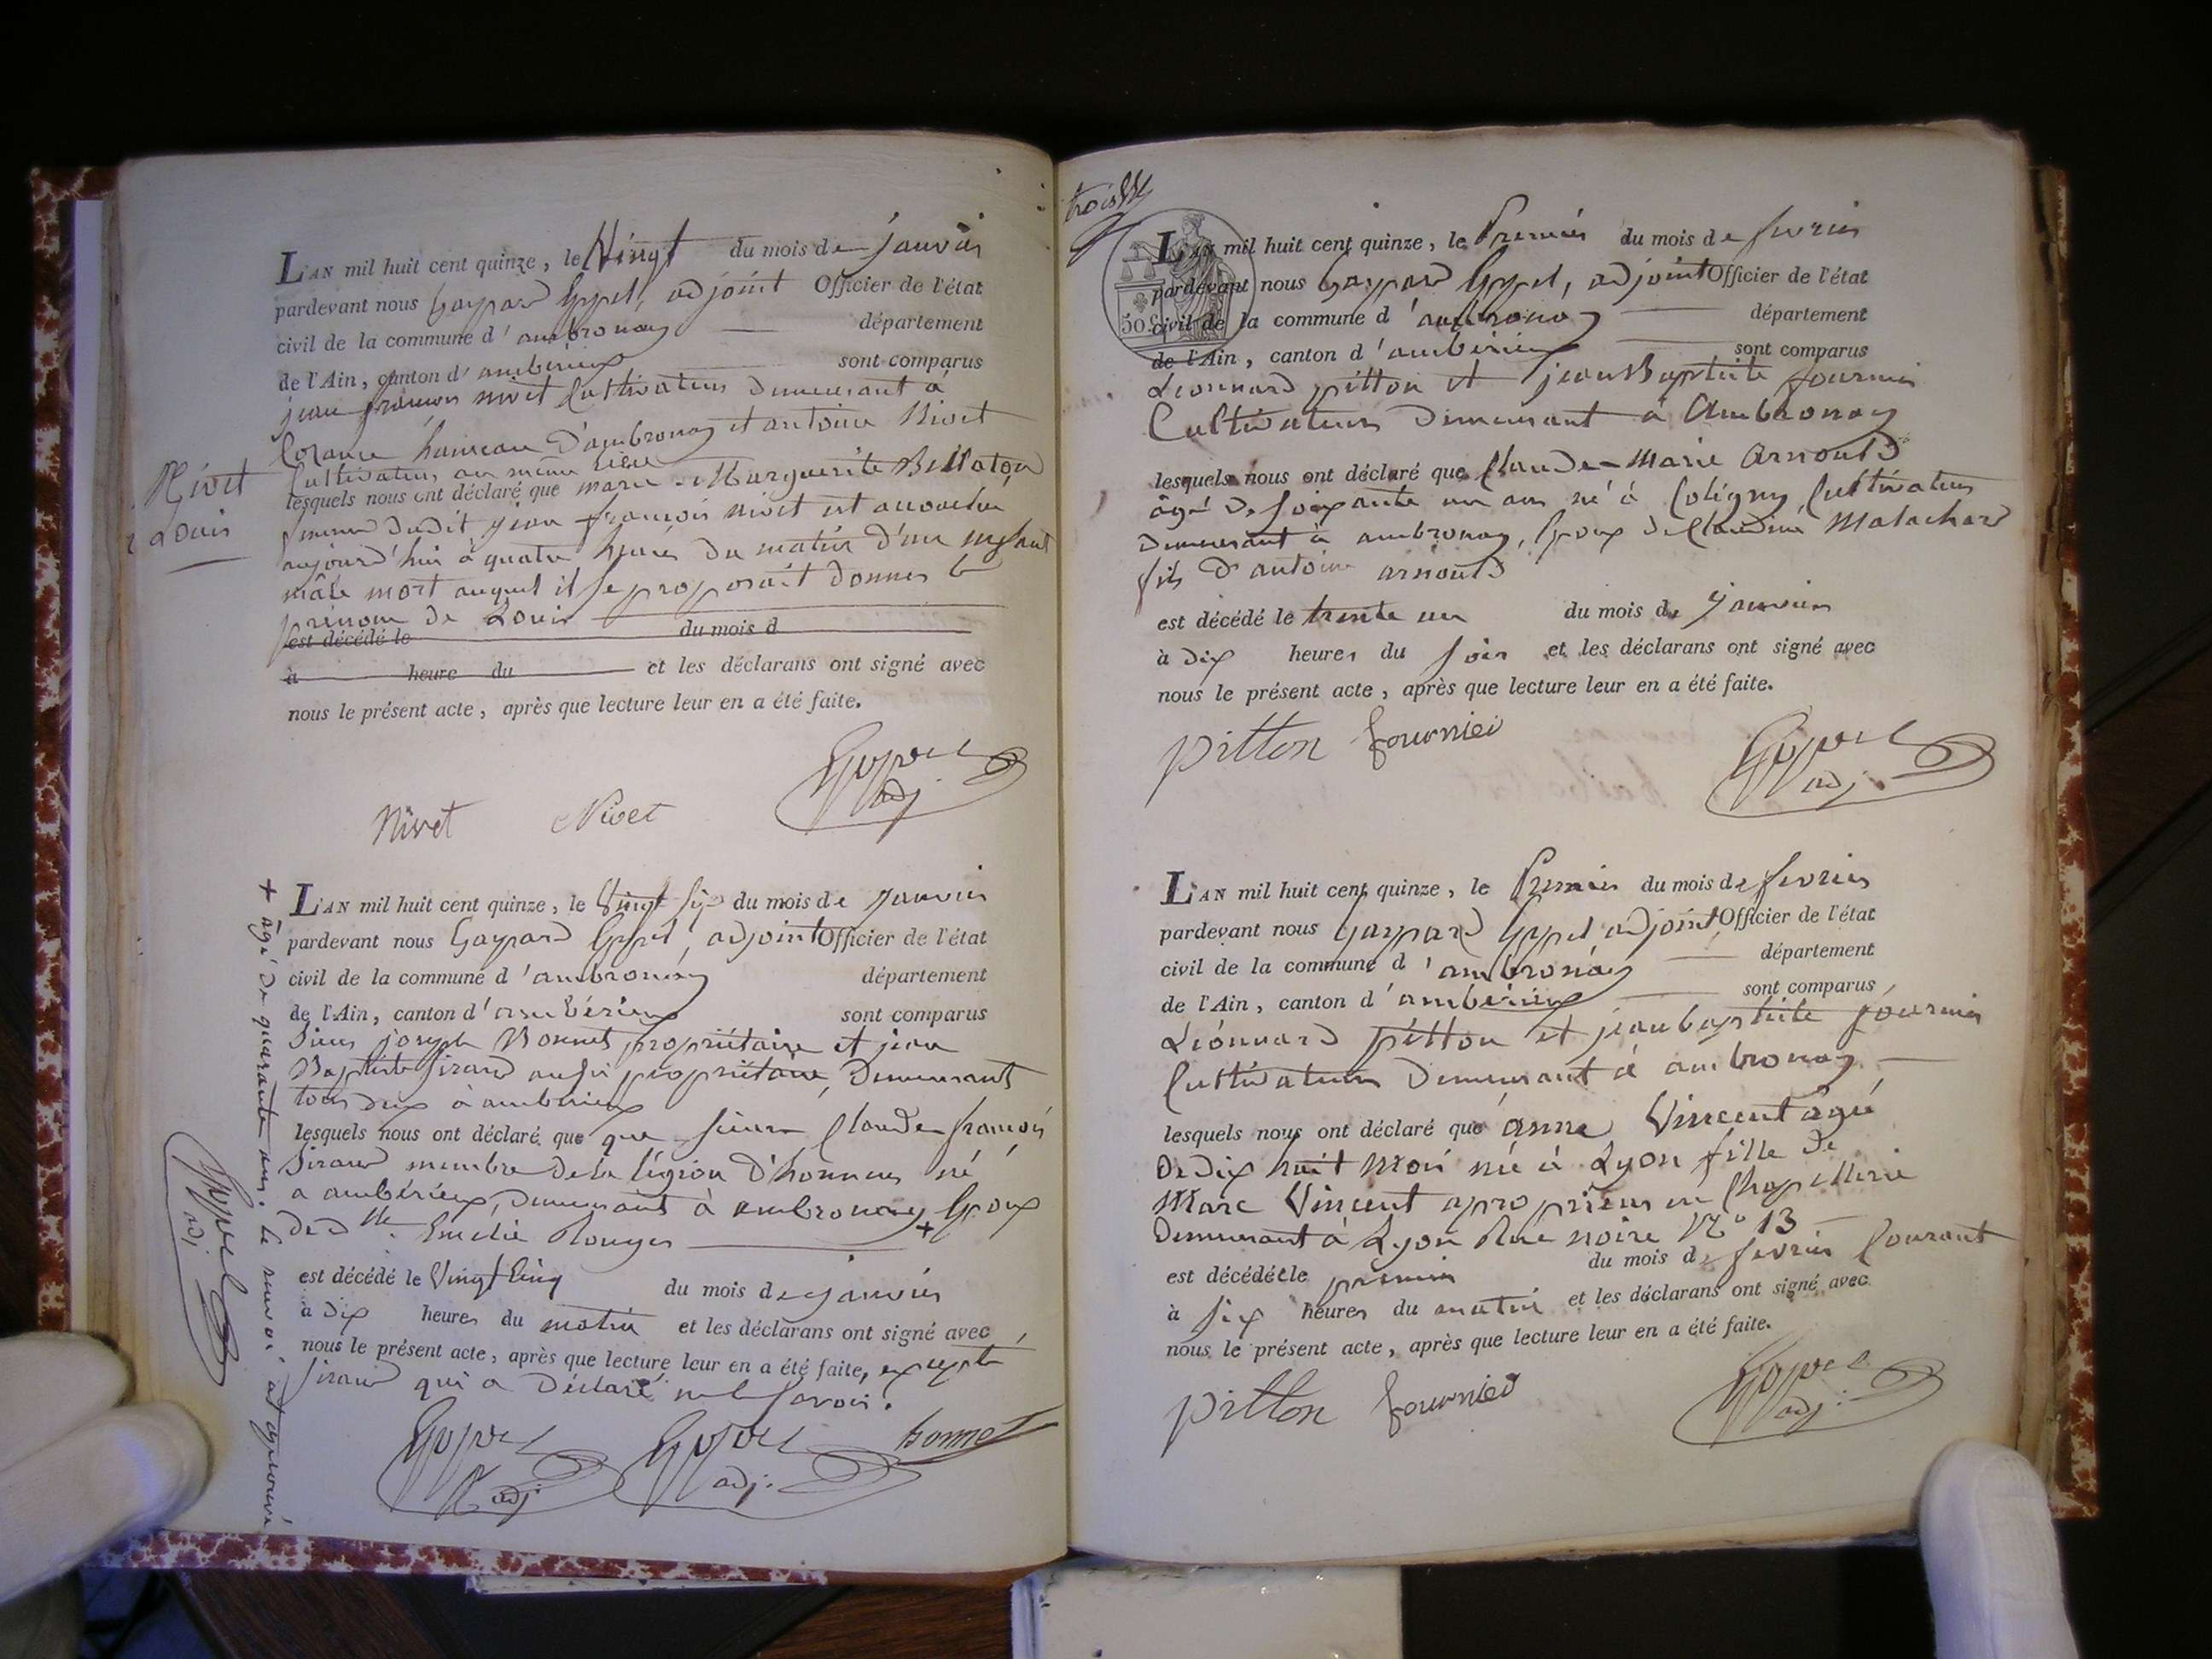 L'AN mil huit cent quinze, le Vingt du mois de janvier
pardevant nous Gaspard Gppel, adjoint Officier de l'état
civil de la commune d'ambronay département
de l'Ain, canton d'ambérieux sont comparus
jean françois nivet Cultivateur demeurant à
hameau d'ambronay et antoine Nivet
Cultivateur au même lieu
lesquels nous ont déclaré que marie-Marguerite
femme dudit jean françois nivet est accouchée
aujourd'hui à quatre heures du matin d'un enfant
mâle mort auquel il se proposait donner le
prénom de Louis
est décédé le du mois d
à heure du et les déclarans ont signé avec
nous le présent acte, après que lecture leur en a été faite.
Nivet
Louis
adj
Nivet Nivet
L'AN mil huit cent quinze, le Vingt six du mois de janvier
pardevant nous Gaspard Gppel, adjoint Officier de l'état
civil de la commune d'ambronay département
de l'Ain, canton d'ambérieux sont comparus
Sieur joseph Bonnet propriétaire et jean
Baptiste Sirand aussi propriétaire, demeurant
tous deux à ambérieux
lesquels nous ont déclaré que que sieur Claude françois
Sirand membre de la légion d'honneur né
a ambérieux, demeurant à ambronay + Epoux
de dlle. Emelie Rouyer
est décédé le Vingt Cinq du mois de janvier
à dix heures du matin et les déclarans ont signé avec
nous le présent acte, après que lecture leur en a été faite, excepté
Sirand qui a déclaré ne le savoir.
adj. adj. bonnet
+ âgé de quarante ans. le renvoi approuvé
adj.
trois
50 c
L'AN mil huit cent quinze, le Premier du mois de fevrier
pardevant nous Gaspard Gppel, adjoint Officier de l'état
civil de la commune d'ambronay département
de l'Ain, canton d'ambérieux sont comparus
Léonnard pitton et jean Baptiste fournier
Cultivateurs demeurant à Ambronay
lesquels nous ont déclaré que Claude-Marie Arnould
âgé de soixante un ans né à Coligny Cultivateur
demeurant à ambronay, Epoux de Claudine Malachard
fils d'antoine arnould
est décédé le trente un du mois de janvier
à dix heures du soir et les déclarans ont signé avec
nous le présent acte, après que lecture leur en a été faite.
pitton fournier adj.
L'AN mil huit cent quinze, le Premier du mois de fevrier
pardevant nous Gaspard Gppel adjoint, Officier de l'état
civil de la commune d'ambronay département
de l'Ain, canton d'ambérieux sont comparus
Léonnard pitton et jean baptiste fournier
Cultivateurs demeurant à ambronay
lesquels nous ont déclaré que anne Vincent âgée
de dix huit mois née à Lyon fille de
Marc Vincent approprieur en Chapellerie
demeurant à Lyon Rue noire N° 13
est décédée le premier du mois de fevrier Courant
à six heures du matin et les déclarans ont signé avec
nous le présent acte, après que lecture leur en a été faite.
pitton fournier adj.